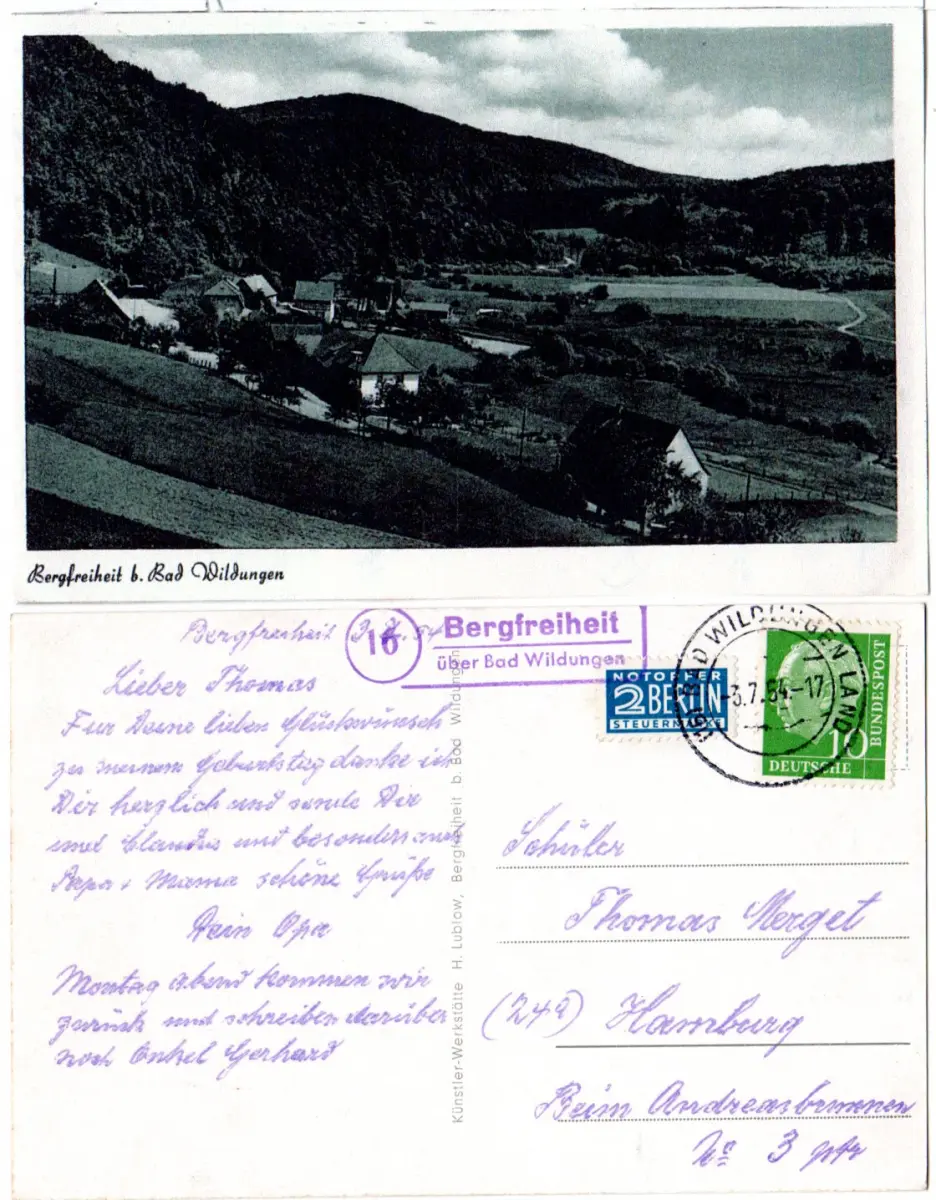 Bergfreiheit b. Bad Wildungen
Bergfreiheit 3.7.54
16
Bergfreiheit
über Bad Wildungen
NOTOPFER
2 BERLIN
STEUERMARKE
BAD WILDUNGEN LAND
-3.7.54.-17
10
DEUTSCHE
BUNDESPOST
Lieber Thomas
Für Deine lieben Glückwünsch
zu meinem Geburtstag danke ich
Dir herzlich und sende Dir
und Claudus und besonders auch
Papa + Mama schöne Grüße
Dein Opa
Montag abend kommen wir
zurück und schreiben darüber
noch Onkel Gerhard
Künstler-Werkstätte H. Lublow, Bergfreiheit b. Bad Wildungen
Schüler
Thomas Merget
(24a) Hamburg
Beim Andreasbrunnen
No 3 ptr